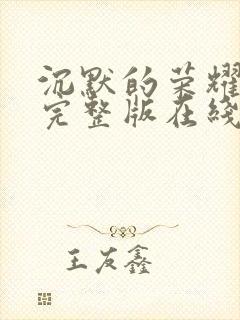 沉默的荣耀
完整版在线
王友鑫